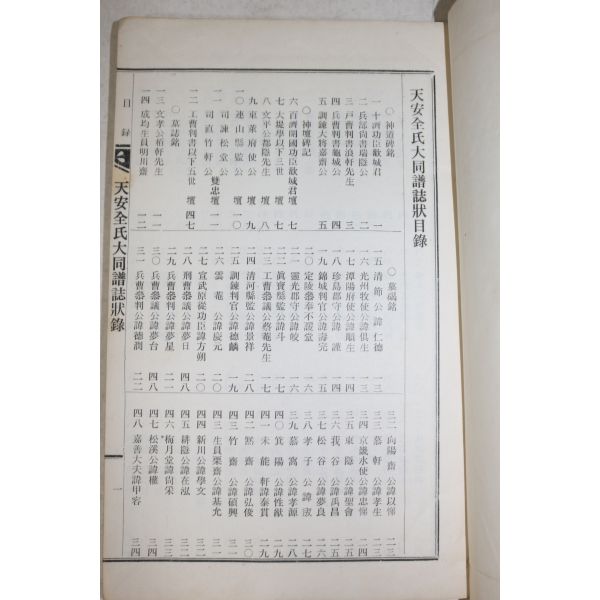 天安全氏大同譜誌狀目錄
○神道碑銘
一 十濟功臣歡城君 一
二 兵部尙書瑞隱公 二
三 戶曹判書浪軒先生 三
四 兵曹判書龜城公 四
五 訓鍊大將嘉齋公 五
○神壇碑記
六 百濟開國功臣歡城君壇 七
七 大提學以下三世 壇 七
八 文平公都隱先生 壇 八
九 東萊府使公 壇 九
一〇 連山縣監公 壇 一〇
一一 司諫松堂公
一一 司直竹軒公 雙忠壇 一一
一二 工曹判書以下五世 壇 四七
○墓誌銘
一三 文孝公栢軒先生 一一
一四 成均生員明川齋 一二
○墓碣銘
一五 清節公諱仁德 一三
一六 光州牧使公諱俱生 一三
一七 潭陽府使公諱順生 一四
一八 珍島郡守公諱 謹 一四
一九 錦城判官公諱壽完 一五
二〇 定陵參奉不諼堂 一六
二一 靈光郡守公諱皎 一六
二二 眞寶縣監公諱斗 一七
二三 工曹參議公蔡菴先生 一七
二四 清河縣監公諱景祥 一八
二五 訓鍊判官公諱德麟 一九
二六 雲菴 公諱慶元 二〇
二七 宣武原從功臣諱方朔 二〇
二八 刑曹參議公諱夢日 四八
二九 兵曹參判公諱夢星 二一
三〇 兵曹參議公諱夢台 四八
三一 兵曹參判公諱德潤 二二
三二 向陽齋公諱以悌 二三
三三 慕軒公諱孝生 二三
三四 京畿水使公諱忠悌 二四
三五 東隱公諱聖會 二五
三六 我谷公諱禹昌 二五
三七 松谷公諱夢良 二六
三八 孝子公諱淑 二七
三九 慕窩公諱孝源 二八
四〇 箕陽公諱性獻 二九
四一 未能軒諱泰貫 二九
四二 默齋公諱弘俊 三〇
四三 竹齋公諱碩興 三一
四三 生員栗齋公諱基允 三一
四四 新川公諱學文 三二
四五 耕隱公諱在泓 三二
四六 梅月堂諱尙采 三三
四七 松溪公諱權 三四
四八 嘉善大夫諱甲容 三四
目錄
天安全氏大同譜誌狀錄
一